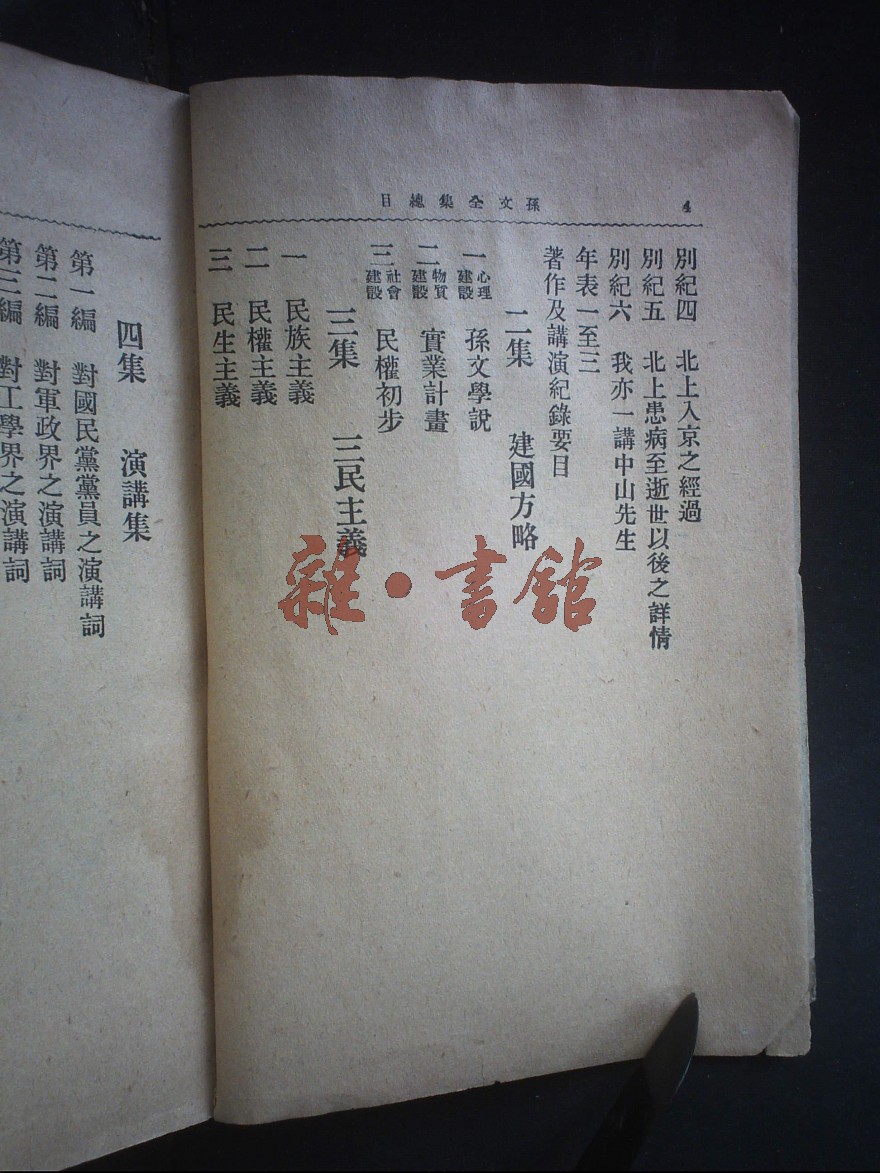 孫文全集總目
4
別紀四　北上入京之經過
別紀五　北上患病至逝世以後之詳情
別紀六　我亦一講中山先生
年表一至三
著作及講演紀錄要目
二集　建國方略
一　心理建設　孫文學說
二　物質建設　實業計畫
三　社會建設　民權初步
三集　三民主義
一　民族主義
二　民權主義
三　民生主義
四集　演講集
第一編　對國民黨黨員之演講詞
第二編　對軍政界之演講詞
第三編　對工學界之演講詞
雜·書館